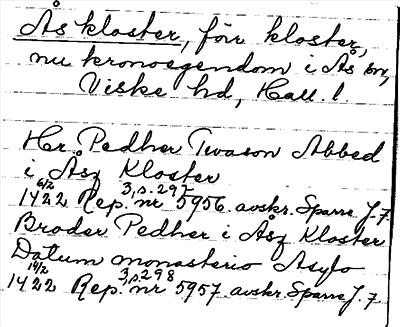 Ås kloster, förr kloster,
nu kronoegendom i Ås sn,
Viske hd, Hall. l.
Her Pedher Twason Abbed
i Åsz Kloster
6/2 3,s.297
1422 Rep. nr 5956 avskr. Sparre J. 7.
Broder Pedher i Åsz Kloster
Datum monasterio Asylo
14/2 3,s.298
1422 Rep. nr 5957 avskr. Sparre J. 7.